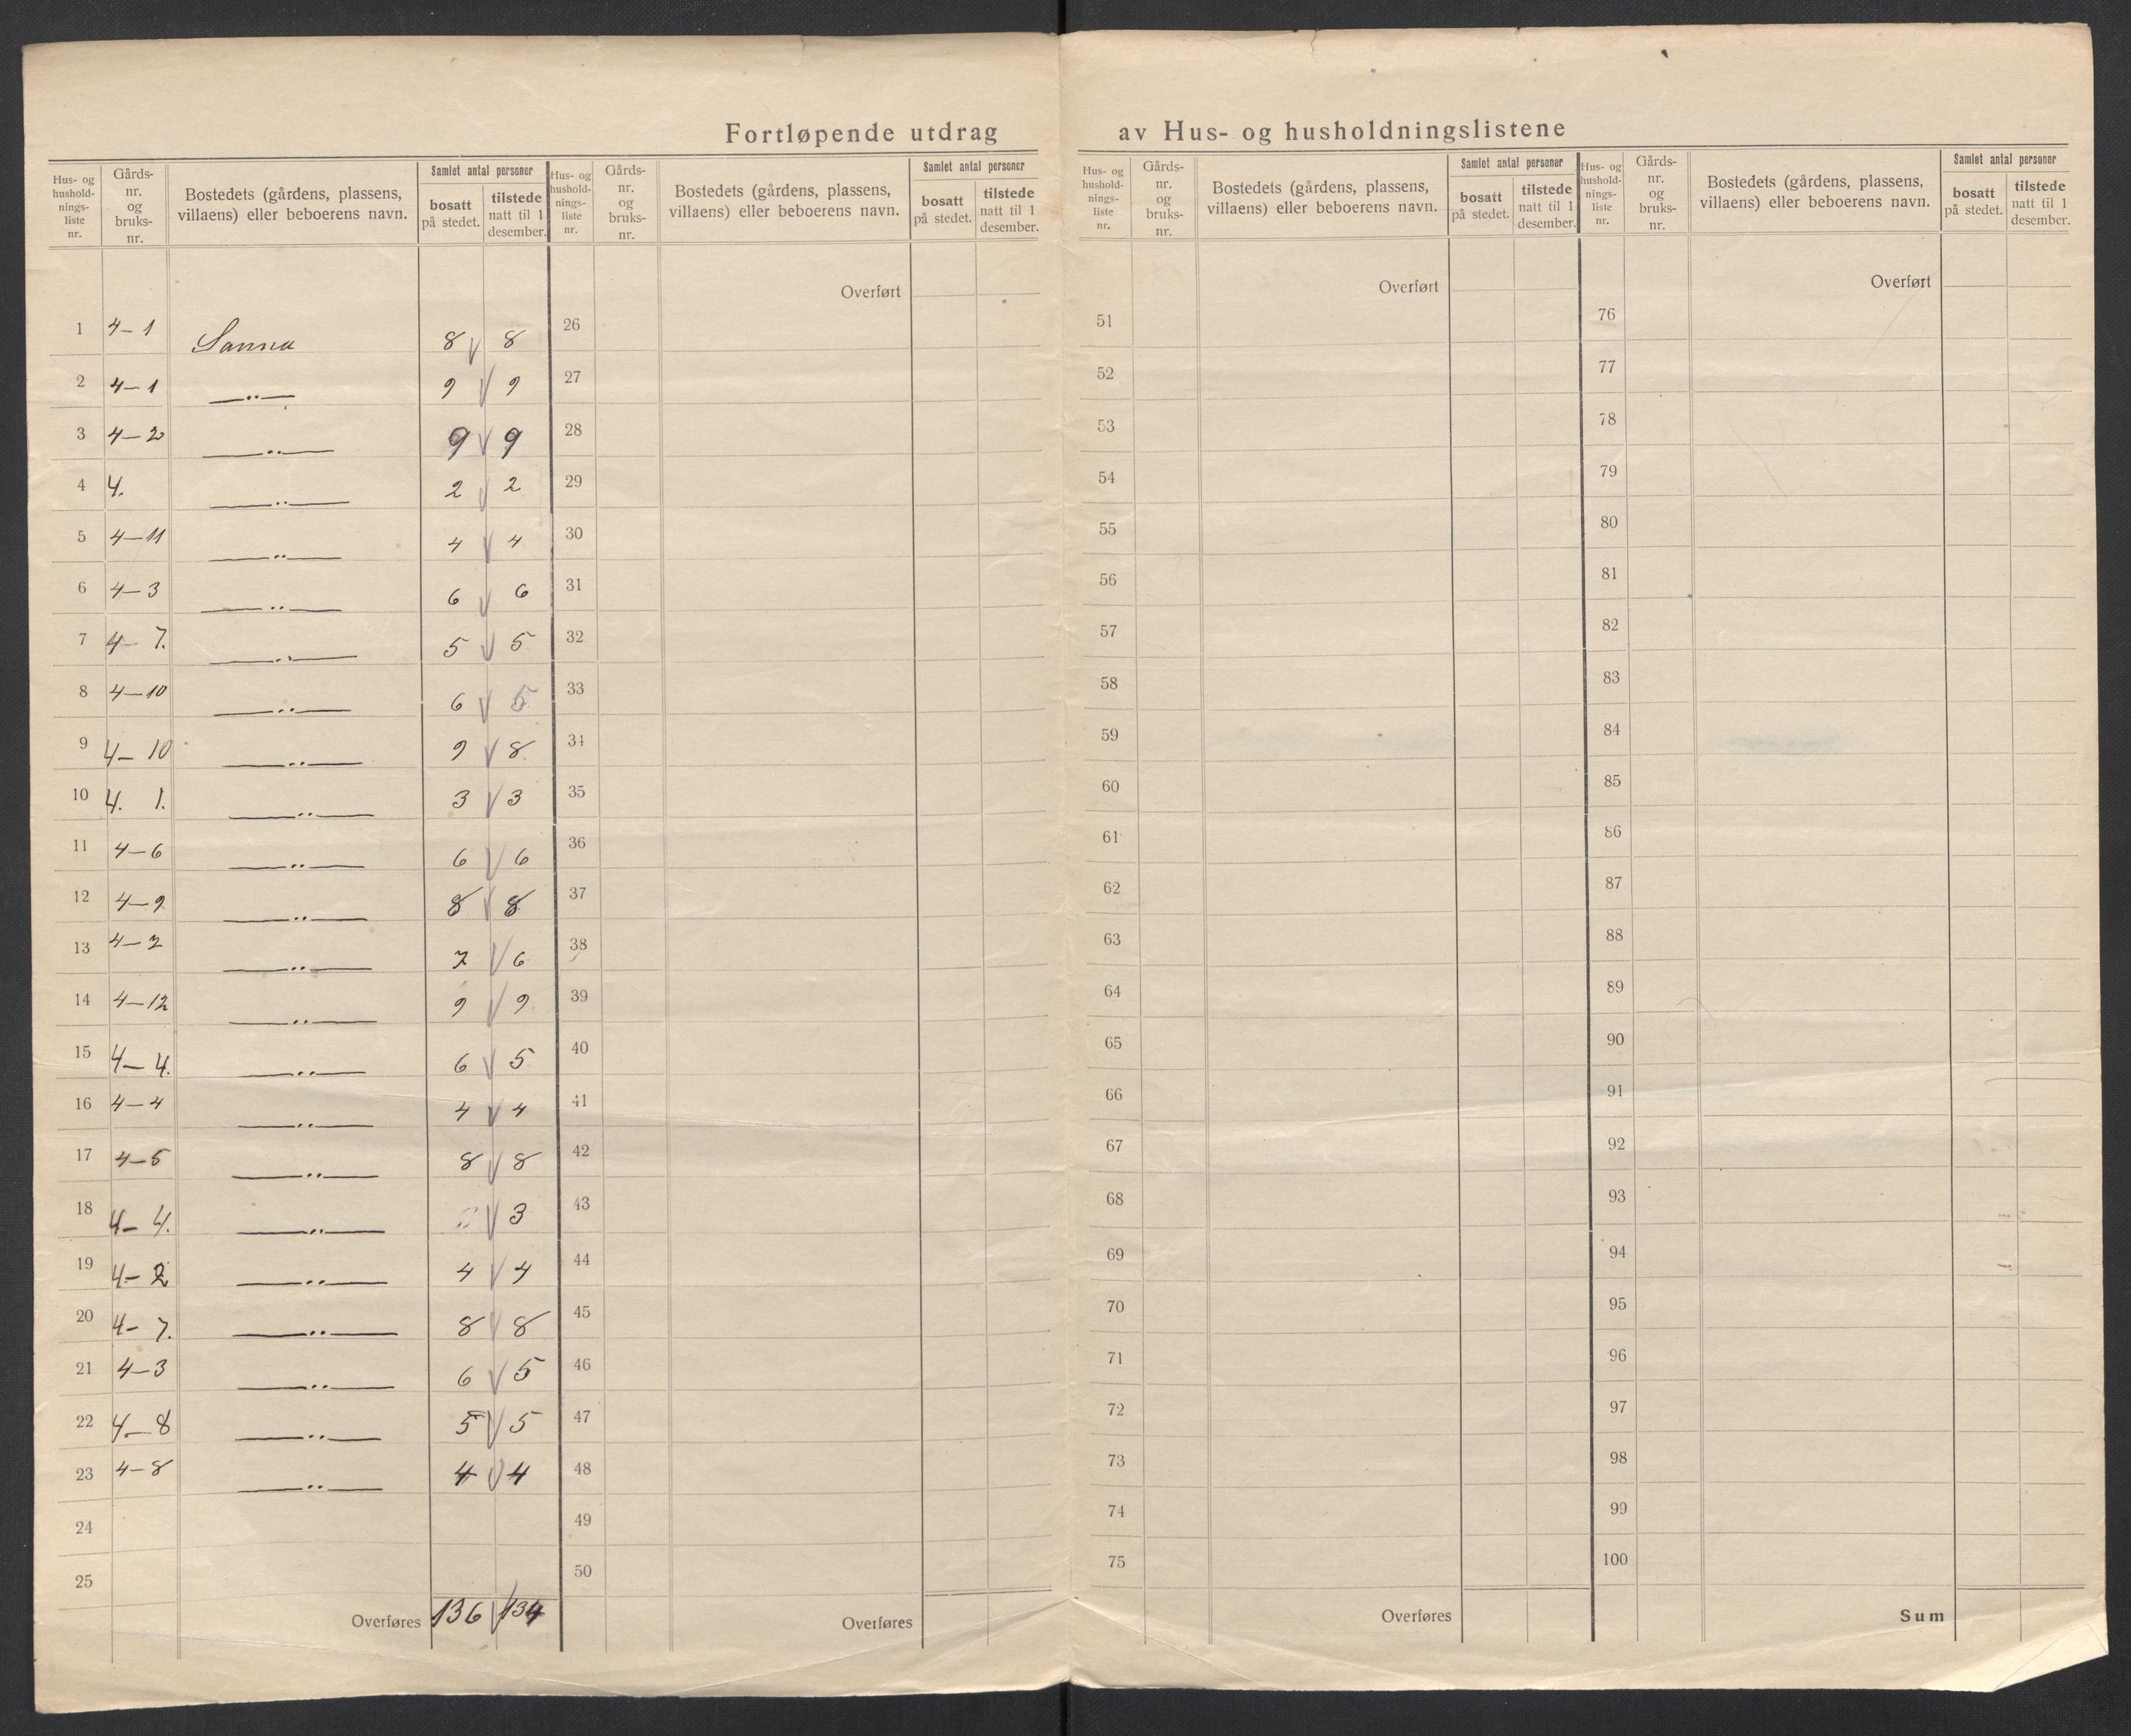 Fortløpende utdrag av Hus- og husholdningslistene
Hus- og hushold-nings-liste nr. Gårds-nr. og bruks-nr. Bostedets (gårdens, plassens, villaens) eller beboerens navn. Samlet antal personer bosatt på stedet. tilstede natt til 1 desember.
1 4-1 Sanna 8 8
2 4-1 —„— 9 9
3 4-2 —„— 9 9
4 4. —„— 2 2
5 4-11 —„— 4 4
6 4-3 —„— 6 6
7 4-7. —„— 5 5
8 4-10 —„— 6 5
9 4-10 —„— 9 8
10 4. 1. —„— 3 3
11 4-6 —„— 6 6
12 4-9 —„— 8 8
13 4-2 —„— 7 6
14 4-12 —„— 9 9
15 4-4. —„— 6 5
16 4-4 —„— 4 4
17 4-5 —„— 8 8
18 4-4. —„— 3
19 4-2 —„— 4 4
20 4-7. —„— 8 8
21 4-3 —„— 6 5
22 4-8 —„— 5 5
23 4-8 —„— 4 4
24
25
Overføres 136 134
Hus- og hushold-nings-liste nr. Gårds-nr. og bruks-nr. Bostedets (gårdens, plassens, villaens) eller beboerens navn. Samlet antal personer bosatt på stedet. tilstede natt til 1 desember.
Overført
26
27
28
29
30
31
32
33
34
35
36
37
38
39
40
41
42
43
44
45
46
47
48
49
50
Overføres
Hus- og hushold-nings-liste nr. Gårds-nr. og bruks-nr. Bostedets (gårdens, plassens, villaens) eller beboerens navn. Samlet antal personer bosatt på stedet. tilstede natt til 1 desember.
Overført
51
52
53
54
55
56
57
58
59
60
61
62
63
64
65
66
67
68
69
70
71
72
73
74
75
Overføres
Hus- og hushold-nings-liste nr. Gårds-nr. og bruks-nr. Bostedets (gårdens, plassens, villaens) eller beboerens navn. Samlet antal personer bosatt på stedet. tilstede natt til 1 desember.
Overført
76
77
78
79
80
81
82
83
84
85
86
87
88
89
90
91
92
93
94
95
96
97
98
99
100
Sum